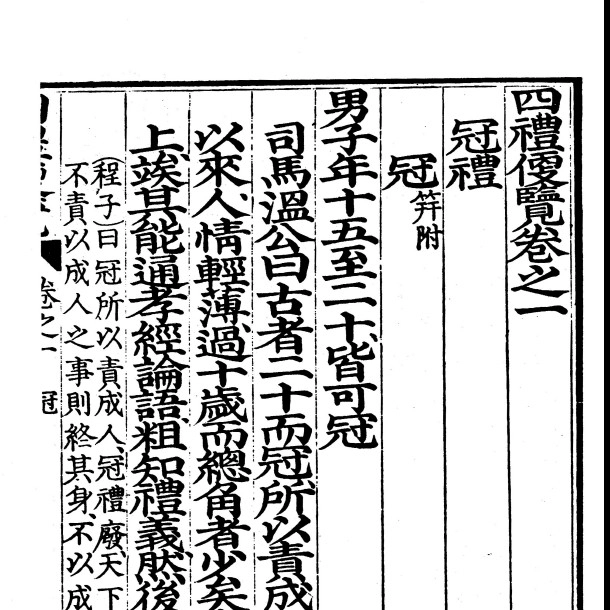 四禮便覽卷之一
冠禮
冠 笄附
男子年十五至二十皆可冠
司馬溫公曰古者二十而冠所以責成
以來人情輕薄過十歲而總角者少矣
上竢其能通孝經論語粗知禮義然後
(程子)曰冠所以責成人冠禮廢天下
不責以成人之事則終其身不以成
卷之一 冠